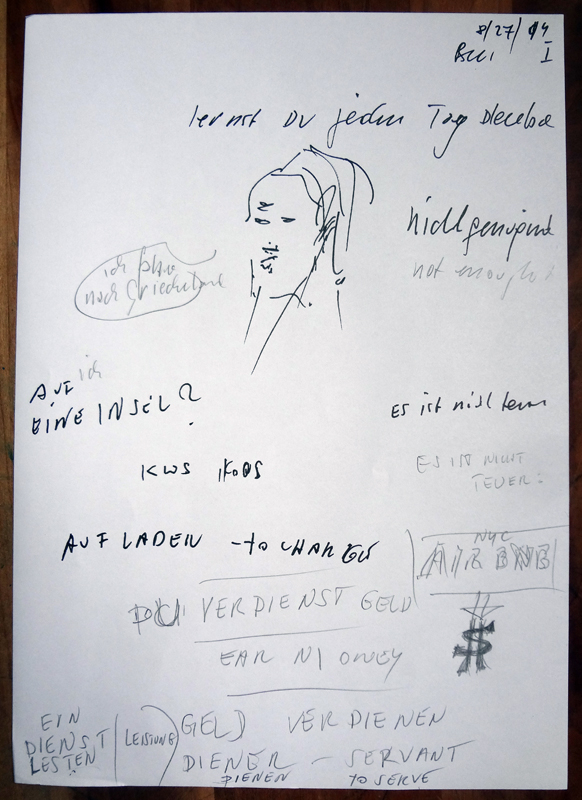 8/27/14
I
lernst Du jeden Tag
nicht genügend
not enough
ich
nach Griechenland
AUF ich
EINE INSEL?
Es ist nicht teuer
ES IST NICHT
TEUER:
KWS KOOS
AUFLADEN - TO CHARGE
NYC
AIR BNB
DU VERDIENST GELD
EARN MONEY
$
EIN
DIENST
LESTEN
LEISUNG
GELD VERDIENEN
DIENER - SERVANT
DIENEN TO SERVE